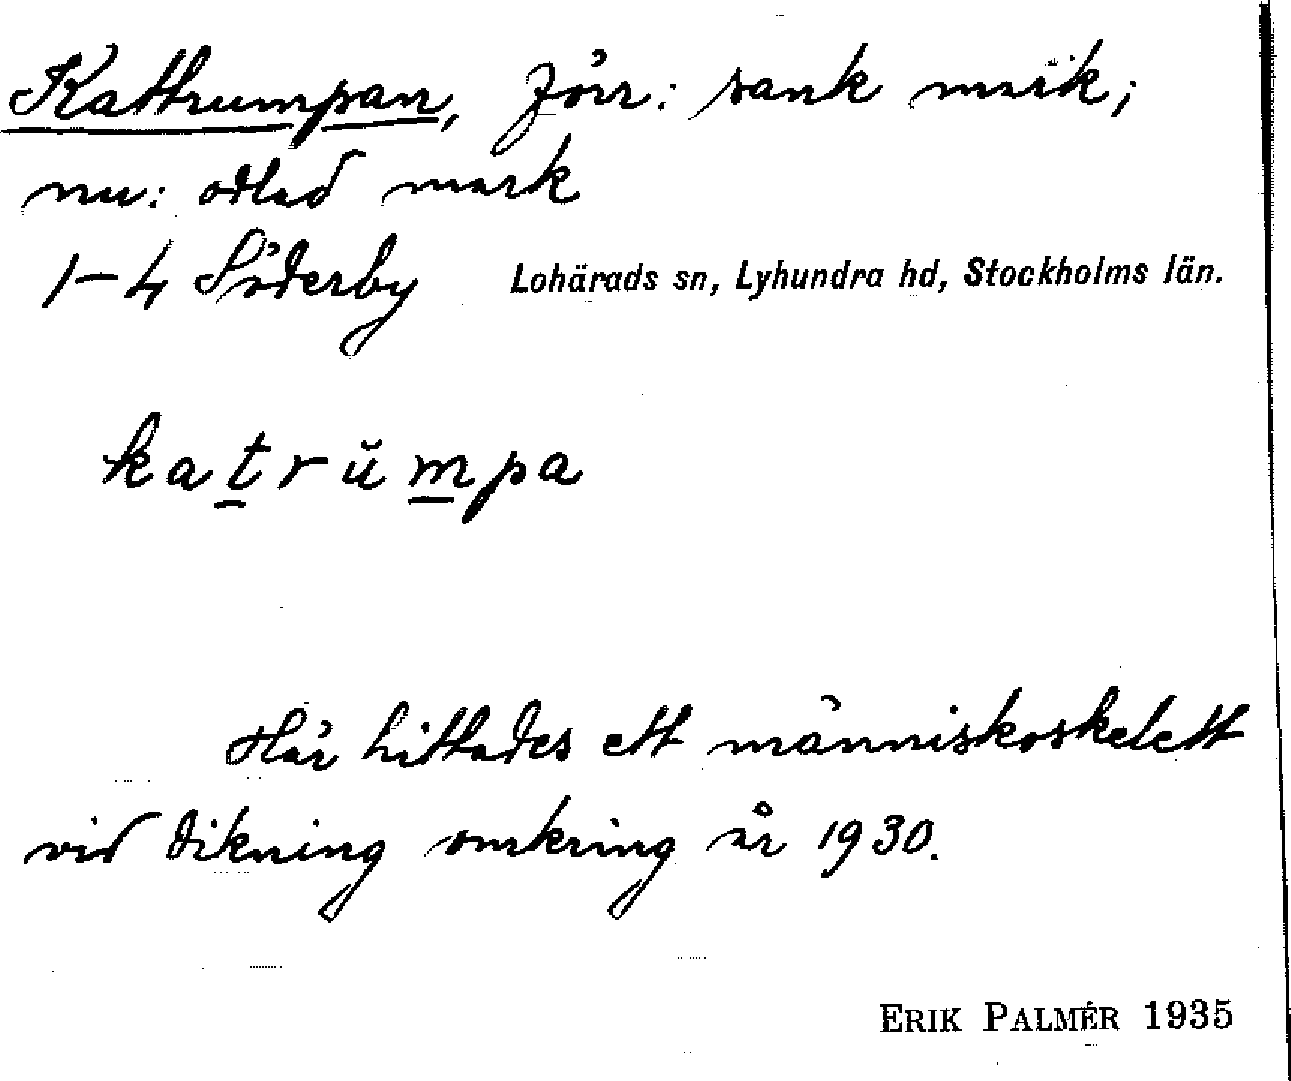 Kattrumpan, förr: sank mark;
nu: odlad mark
1-4 Söderby Lohärads sn, Lyhundra hd, Stockholms län.
katrŭmpa
Här hittades ett människoskelett
vid dikning omkring år 1930.
ERIK PALMÉR 1935